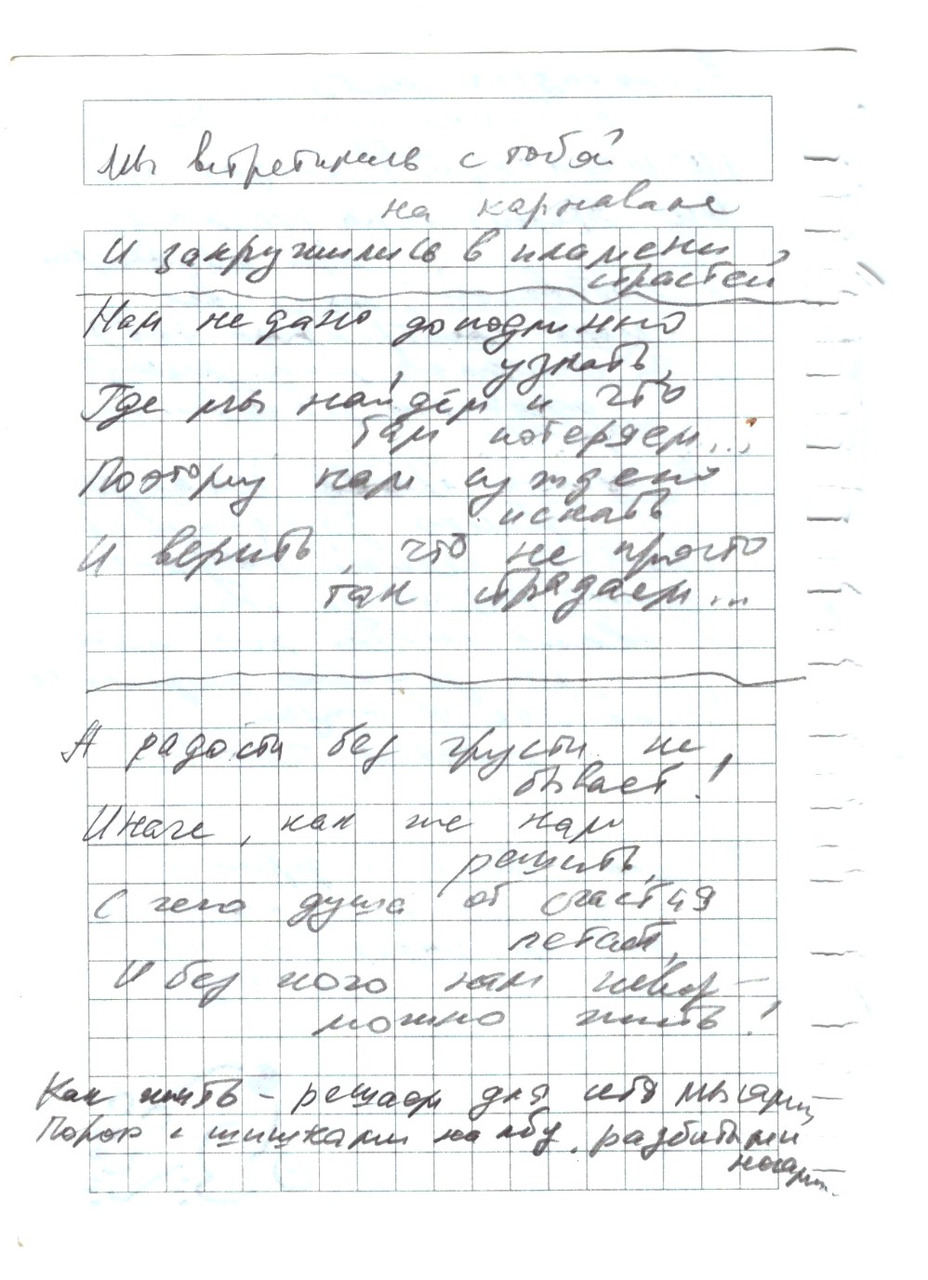 Мы встретились с тобой
на карнавале
И закружились в пламени
страстей
Нам не дано доподлинно
узнать,
Где мы найдём и что
там потеряем...
Поэтому нам суждено
искать
И верить, что не просто
так страдаем...
А радости без грусти не
бывает!
Иначе, как же нам
решить,
С чего душа от счастья
летает,
И без кого нам невоз-
можно жить!
Как жить - решаем для себя мы сами,
Порой с шишками на лбу, разбитыми
носами.